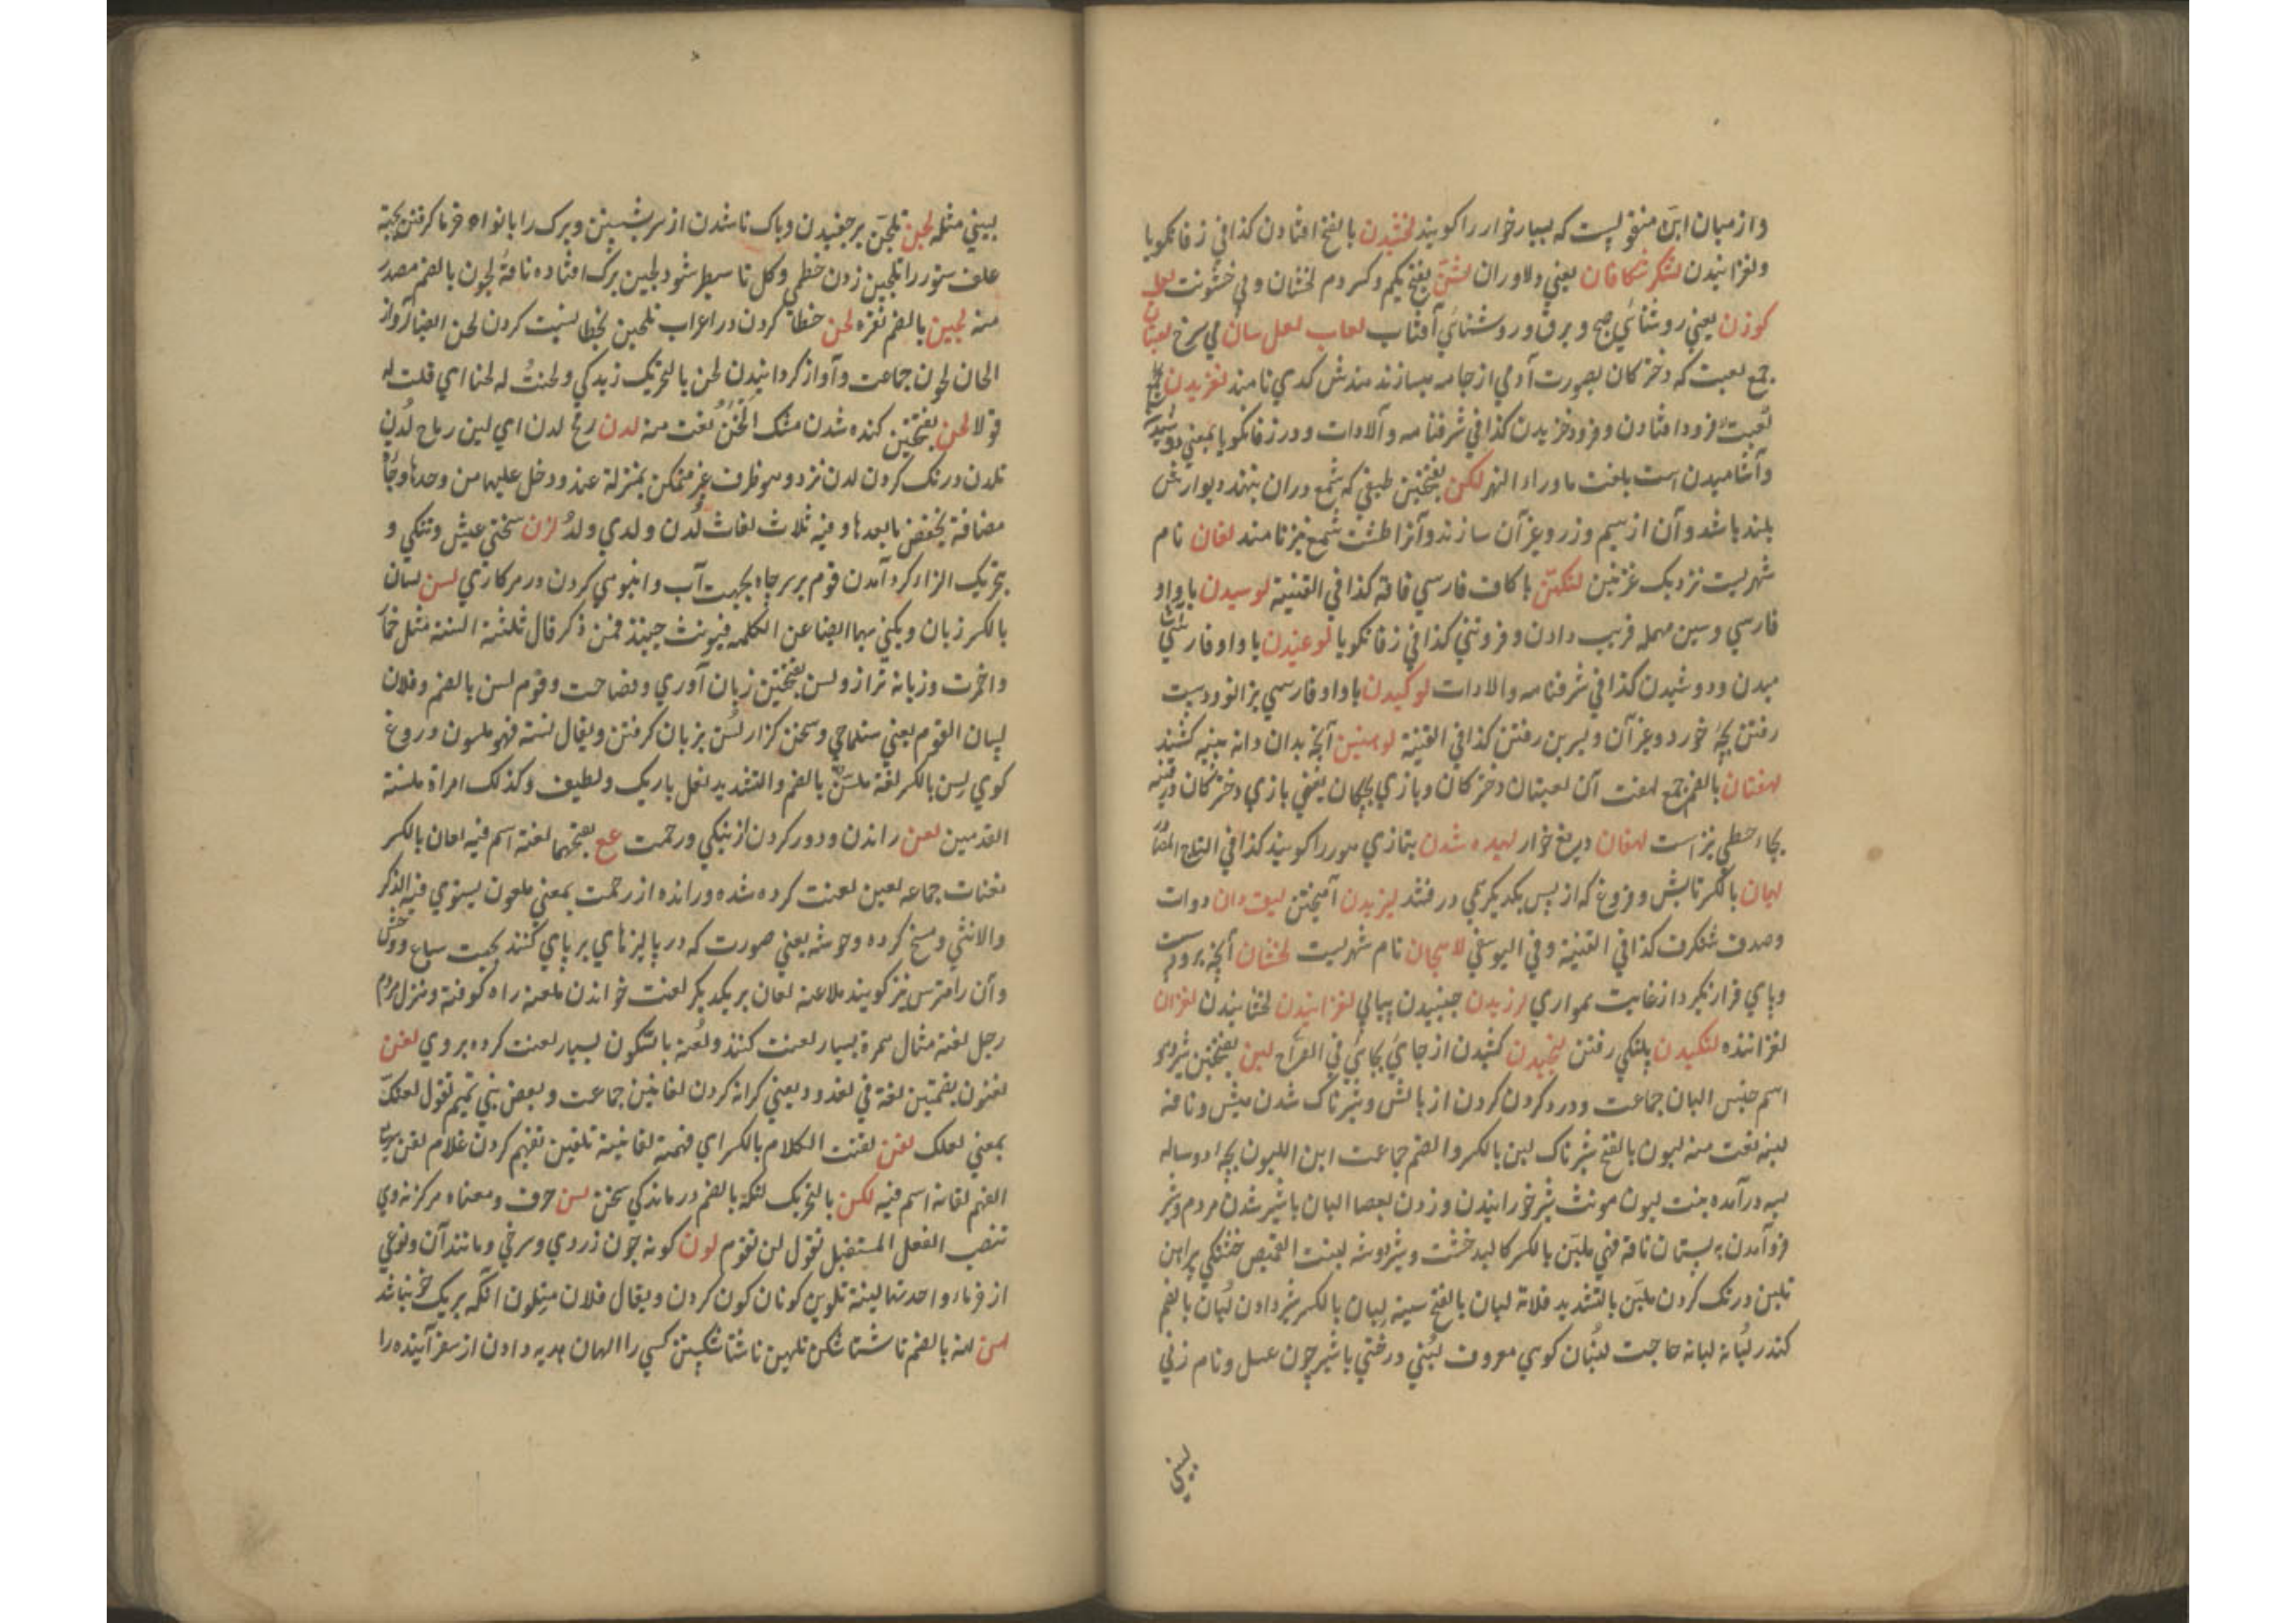 وازمیان ابنه منقولیست که بسیار خوار را کویند لخشیدن بالفتح افتادن کذا فی زفانکویا
ولغزانیدن لشکرشکافان یعنی دلاوران لشن بفتح یکم وکسر دوم لخشان وبی خشونت لعل
کوزن یعنی روشنائی صبح وبرق وروشنائی آفتاب لعاب لعل سان می سرخ لعبتان
جمع لعبت که دخترکان بصورت آدمی از جامه میسازند هندش کدی نامند لغزیدن
فرود افتادن وفرود خزیدن کذا فی شرفنامه وآلادات ودر زفانکویا بمعنی دوشیدن
وآشامیدن است بلغت ماوراء النهر لکن بفتحتین طبقی که شمع دران بنهند دیوارش
بلند باشد وآن از سیم وزر وغیر آن سازند وآنرا طشت شمع نیز نامند لغان نام
شهریست نزدیک غزنین لنکهن با کاف فارسی فاقه کذا فی القنیة لوسیدن با واو
فارسی وسین مهمله فریب دادن وفروتنی کذا فی زفانکویا لوغیدن با واو فارسی آشا
میدن ودوشیدن کذا فی شرفنامه والادات لوکیدن با واو فارسی بزانو ودست
رفتن بچهٔ خورد وغیر آن وبسرین رفتن کذا فی القنیة لوهنین آنچه بدان دانه پنبه کشند
لهفتان بالضم جمع لهفت آن لعبتان دخترکان وبازی بچکان یعنی بازی دخترکان
بجاء حطی نیز است لهفان دریغ خوار لهیده شدن بتازی مور را کویند کذا فی التاج
لهان بالکسر تابش وفروغ که از پس یکدیکر می درفشد لیزیدن آمیختن لیقه دان دوات
وصدف شنکرف کذا فی القنیة وفی الیوسفی لاهیجان نام شهریست لخشان آنچه برو دست
وپای قرار نکیرد از غایت همواری لرزیدن جنبیدن پیاپی لغزانیدن لخشانیدن لغزان
لغزاننده لنکیدن بلنکی رفتن لنجیدن کشیدن از جائی بجائی فی الصراح لبن بفتحتین شیر وهو
اسم جنس البان جماعت ودرد کردن کردن از بالش وشیرناک شدن میش وناقة
لبنة نعت منه لبون بالفتح شیرناک لبن بالکسر والضم جماعت ابن اللبون بچه دوساله
بسه درآمده بنت لبون مونث شیر خورانیدن وزدن بعصا البان با شیر شدن مردم وشیر
فروآمدن به پستان ناقة فهی ملبن بالکسر کالبد خشت وشیردوشه لبنت القمیص خشتکی پیراهن
تلبین درنک کردن ملبن بالتشدید فلاتة لبان بالفتح سینه لبان بالکسر شیر دادن لبان بالضم
کندر لبانة لبانه حاجت لبنان کوهی معروف لبنی درختی با شیر چون عسل ونام زنی
بینی مثله لجن تلجن برجفیدن وپاک ناشدن از سرشستن وبرک را بانواه خرما کرفتن بجهة
علف ستور را تلجین زدن خطمی وکل تا سطبر شود لجین برک افتاده ناقة لجون بالضم مصدر
منه لجین بالضم نقره لحن خطا کردن در اعراب تلحین بخطا نسبت کردن لحن ایضا آواز
الحان لحون جماعت وآواز کردانیدن لحن بالتحریک زیرکی ولحنت له لحنا ای قلت له
قولا لخن بفتحتین کنده شدن مشک الخن نعت منه لدن رمح لدن ای لین رماح لدن
تلدن درنک کردن لدن نزد وهو ظرف غیر متمکن بمنزلة عند ودخل علیها من وحدها وجاءة
مضافة بخفض ما بعدها وفیه ثلاث لغات لدن ولدی ولد لزن سختی عیش وتنکی و
بتحریک الزاء کرد آمدن قوم بر سر چاه بجهت آب وانبوهی کردن در هر کاری لسن لسان
بالکسر زبان ویکنی بها ایضا عن الکلمه فیونث حینئذ فمن ذکر قال ثلثة السنة مثل حمار
واحمرة وزبانه ترازو لسن بفتحتین زبان آوری وفصاحت وقوم لسن بالضم وفلان
لسان القوم یعنی متکلم وسخن کزار لسن بزبان کرفتن ویقال لسنة فهو ملسون دروغ
کوی لسن بالکسر لغة ملسن بالضم والتشدید نعل باریک ولطیف وکذلک امراة ملسنة
القدمین لعن راندن ودور کردن از نیکی ورحمت ع بفتحهما لعنة اسم فیه لعان بالکسر
لعنات جماعه لعین لعنت کرده شده ورانده از رحمت بمعنی ملعون یستوی فیه الذکر
والانثی ومسخ کرده وحوشه یعنی صورت که در پالیزهای برپای کنند بجهت سباع ووحش
وآن را مترس نیز کویند ملاعنة لعان بر یکدیکر لعنت خواندن ملعنة راه کوفته ومنزل مردم
رجل لعنة مثال همزة بسیار لعنت کننده ولعنة بالسکون بسیار لعنت کرده بروی لغن
لغنون بضمتین لغة فی لغدود یعنی کرانه کردن لغانین جماعت وبعض بنی تمیم تقول لغنک
بمعنی لعلک لقن لقنت الکلام بالکسر ای فهمته لقانیة تلقین تفهیم کردن غلام لقن سریع
الفهم لقانة اسم فیه لکن بالتحریک لکنة بالضم درماندکی سخن لن حرف ومعناه
تنصب الفعل المستقبل تقول لن تقوم لون کونه چون زردی وسرخی ومانند آن ونوعی
از خرما، واحدتها لینة تلوین کوناکون کردن ویقال فلان متلون آنکه بر یک خو نباشد
لهن لهنة بالضم ناشتا شکن تلهین ناشتا شکستن کسی را الهان هدیه دادن از سفر آینده را
بینی